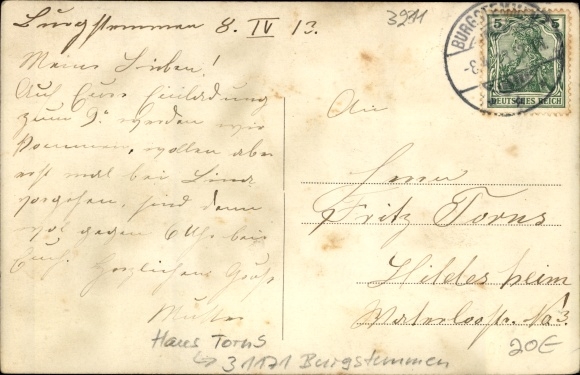 Burgstemmen 8. IV 13.
3211
Meine Lieben!
Auf Eure Einladung
zum 9. werden wir
kommen, wollen aber
erst mal bei
vorgehen, sind dann
vor gegen 6 Uhr bei
Euch. Herzlichen Gruß
Mutter
BURGSTEMMEN
5 5
DEUTSCHES REICH
An
Herrn
Fritz Torns
Hildesheim
Waterloostr. No 3.
Haus Torns
↳ 31171 Burgstemmen
20€